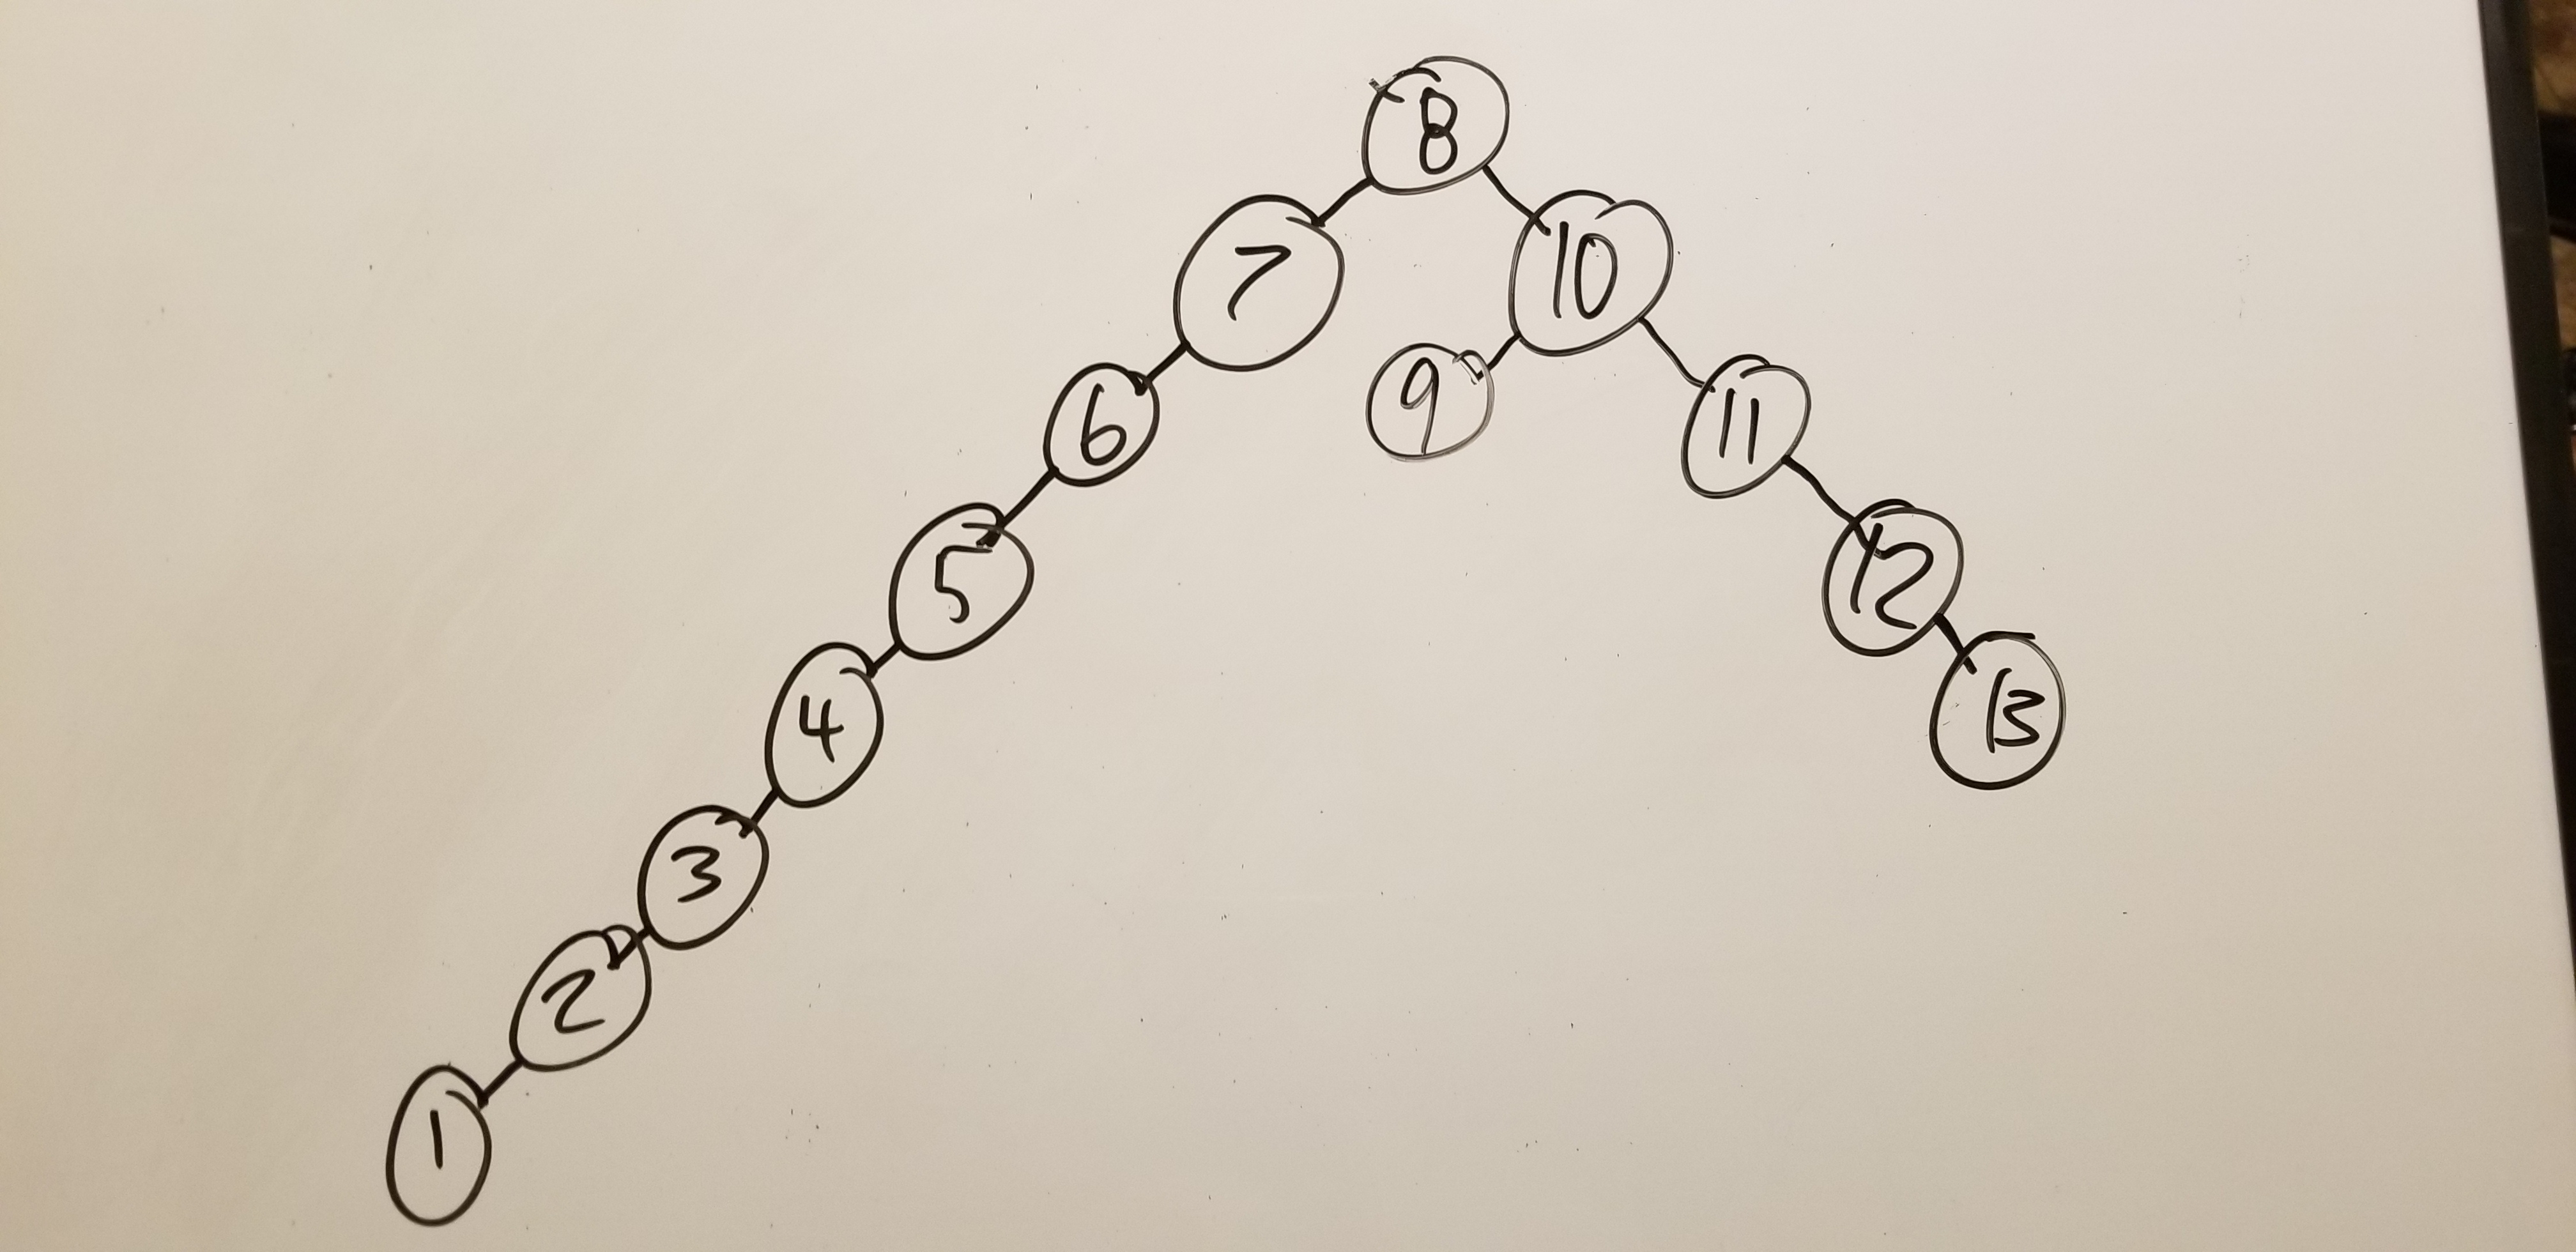 8
7 10
6 9 11
5 12
4 13
3
2
1